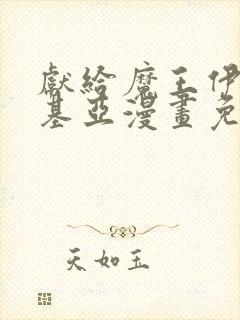 獻給魔王伊
基亞漫畫免
天如玉